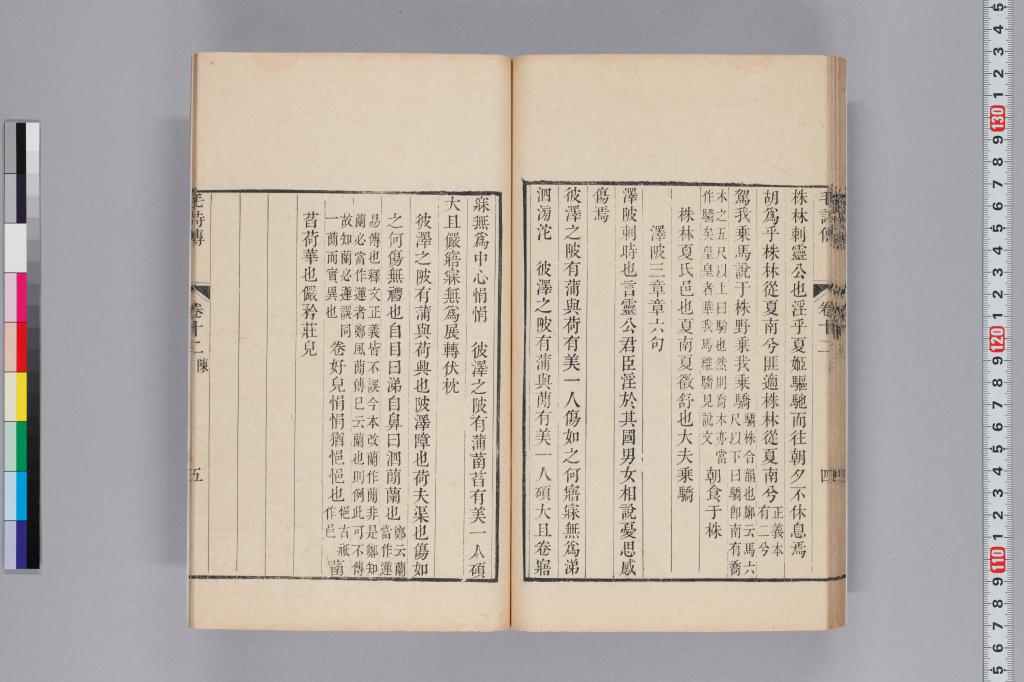 株林刺靈公也淫乎夏姬驅馳而往朝夕不休息焉
胡為乎株林從夏南兮匪適株林從夏南兮正義本有二兮
駕我乘馬說于株野乘我乘驕驕株合韻也鄭云馬六尺以下曰驕卽南有喬
木之五尺以上曰駒也然則喬木亦當作驕矣皇皇者華我馬維驕見說文朝食于株
株林夏氏邑也夏南夏徵舒也大夫乘驕
澤陂三章章六句
澤陂刺時也言靈公君臣淫於其國男女相說憂思感
傷焉
彼澤之陂有蒲與荷有美一人傷如之何寤寐無為涕
泗滂沱 彼澤之陂有蒲與蕑有美一人碩大且卷寤
毛詩傳
卷十二
四
寐無為中心悁悁 彼澤之陂有蒲菡萏有美一人碩
大且儼寤寐無為展轉伏枕
彼澤之陂有蒲與荷興也陂澤障也荷夫渠也傷如
之何傷無禮也自目曰涕自鼻曰泗蕑蘭也鄭云蕑當作蓮
易傳也釋文正義皆不誤今本改蘭作蕑非是鄭知蘭必當作蓮者鄭風蕑傳已云蘭也則例此可不傳
故知蘭必蓮誤同一蕑而實異也卷好皃悁悁猶悒悒也悒古祇作邑菡
萏荷華也儼矜莊皃
毛詩傳
卷十二 陳
五
130
120
110